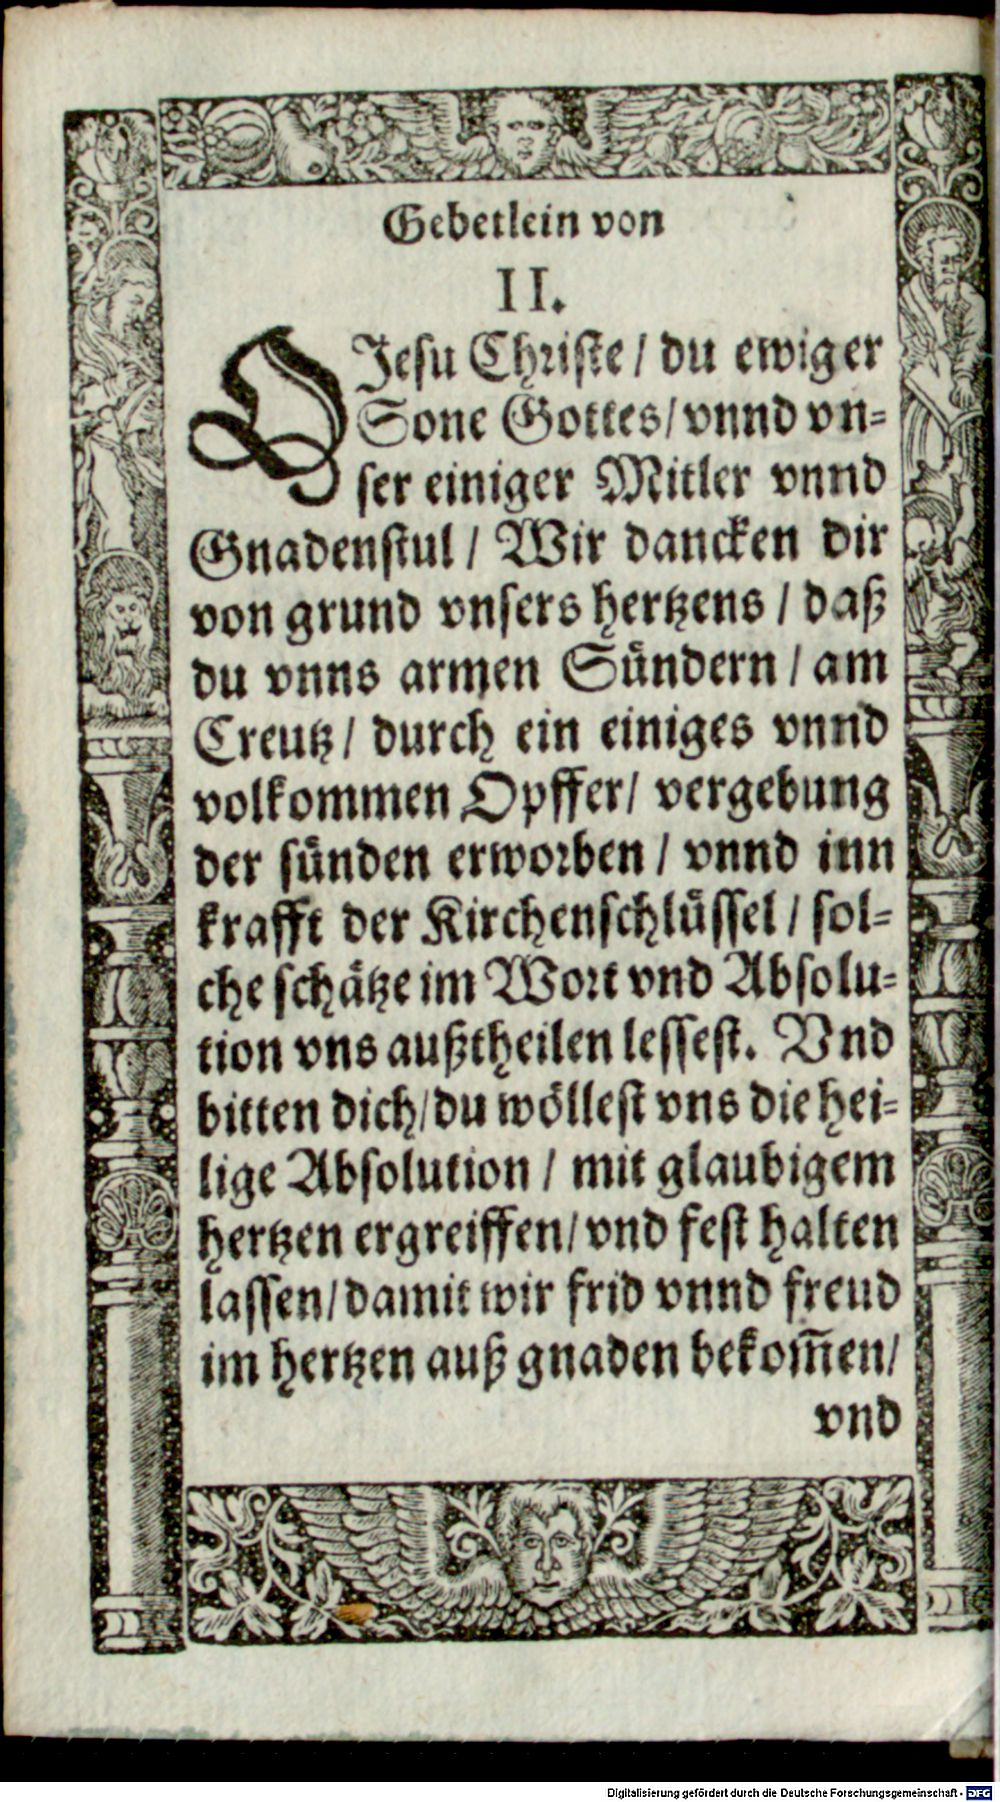 Gebetlein von
II.
O Jesu Christe / du ewiger
Sone Gottes / vnnd vn=
ser einiger Mitler vnnd
Gnadenstul / Wir dancken dir
von grund vnsers hertzens / daß
du vnns armen Sündern / am
Creutz / durch ein einiges vnnd
volkommen Opffer / vergebung
der sünden erworben / vnnd inn
krafft der Kirchenschlüssel / sol=
che schätze im Wort vnd Absolu=
tion vns außtheilen lessest. Vnd
bitten dich / du wöllest vns die hei=
lige Absolution / mit glaubigem
hertzen ergreiffen / vnd fest halten
lassen / damit wir frid vnnd freud
im hertzen auß gnaden bekom̄en /
vnd
Digitalisierung gefördert durch die Deutsche Forschungsgemeinschaft - DFG